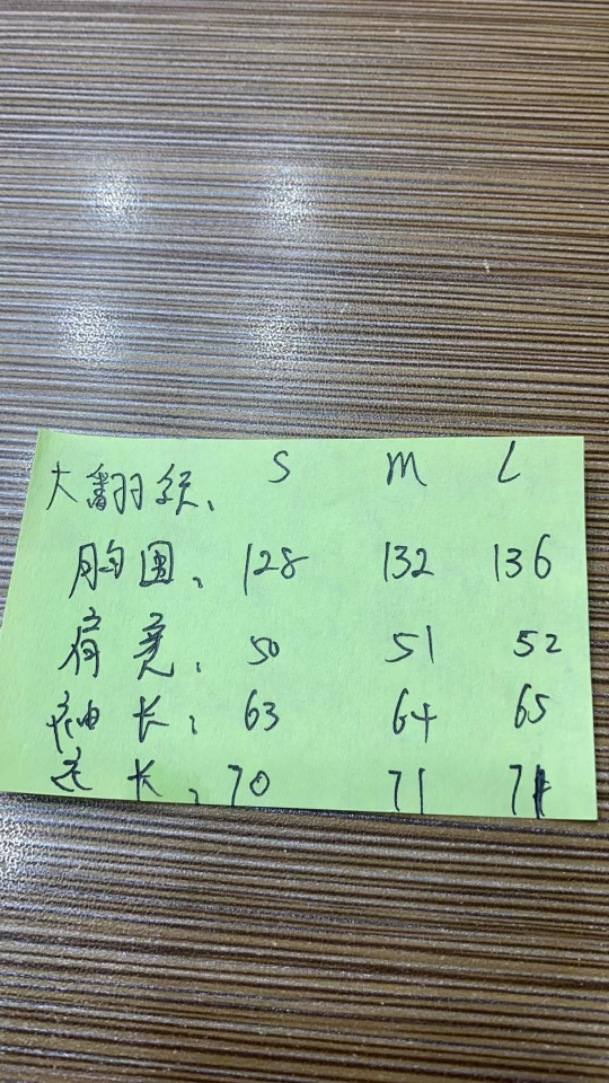 大翻领、 S M L
胸围、 128 132 136
肩宽、 50 51 52
袖长、 63 64 65
衣长、 70 71